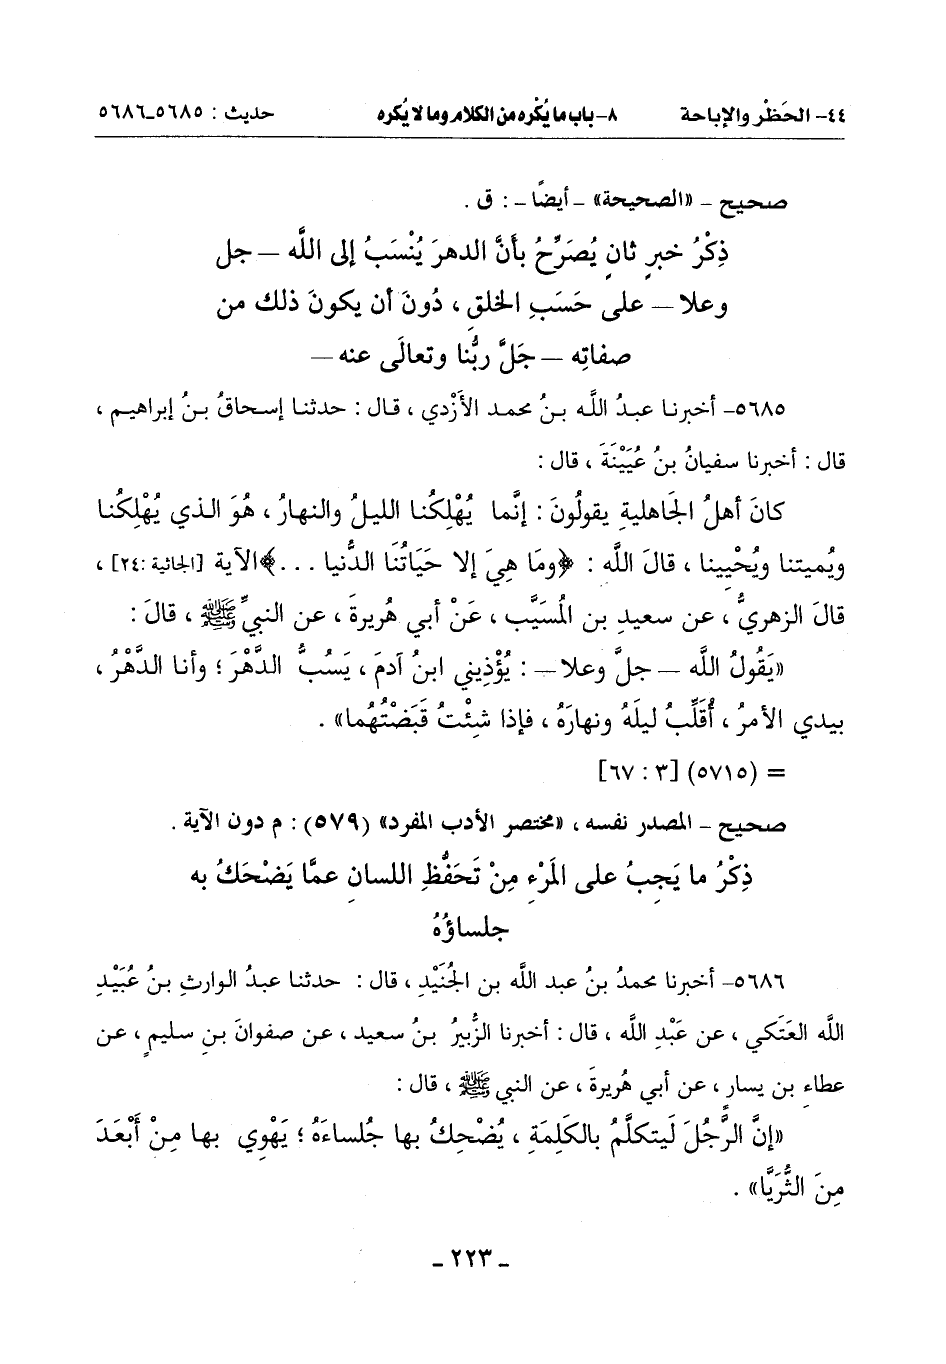 ٤٤- الحَظْر والإباحة ٨- باب ما يُكْره من الكلام وما لا يُكره حديث : ٥٦٨٥-٥٦٨٦
صحيح - «الصحيحة» - أيضًا - : ق .
ذِكْرُ خبرٍ ثانٍ يُصَرِّحُ بأنَّ الدهرَ يُنْسَبُ إلى اللَّه – جل
وعلا – على حَسَبِ الخلقِ ، دُونَ أن يكونَ ذلك من
صفاتِه – جَلَّ ربُّنا وتعالَى عنه –
٥٦٨٥- أخبرنا عبدُ اللَّه بنُ محمد الأَزْدي ، قال : حدثنا إسحاقُ بنُ إبراهيم ،
قال : أخبرنا سفيانُ بنُ عُيَيْنَةَ ، قال :
كانَ أهلُ الجَاهلية يقولُونَ : إنَّما يُهْلِكُنا الليلُ والنهارُ ، هُوَ الذي يُهْلِكُنا
ويُميتنا ويُحْيينا ، قالَ اللَّه : ﴿ومَا هِيَ إلا حَيَاتُنَا الدُّنيا ...﴾الآية [الجاثية :٢٤] ،
قالَ الزهريُّ ، عن سعيدِ بن المُسَيَّب ، عَنْ أبي هُريرةَ ، عن النبيِّ ﷺ ، قالَ :
«يَقُولُ اللَّه – جلَّ وعلا– : يُؤْذِيني ابنُ آدمَ ، يَسُبُّ الدَّهْرَ ؛ وأنا الدَّهْرُ ،
بيدي الأمرُ ، أُقَلِّبُ ليلَهُ ونهارَهُ ، فإذا شِئْتُ قَبَضْتُهُما» .
= (٥٧١٥) [٣ : ٦٧]
صحيح - المصدر نفسه ، «مختصر الأدب المفرد» (٥٧٩) : م دون الآية .
ذِكْرُ ما يَجِبُ على المَرْءِ مِنْ تَحَفُّظِ اللسانِ عمَّا يَضْحَكُ به
جلساؤُهُ
٥٦٨٦- أخبرنا محمدُ بنُ عبد اللَّه بن الجُنَيْدِ ، قال : حدثنا عبدُ الوارثِ بنُ عُبَيْدِ
اللَّه العَتَكي ، عن عَبْدِ اللَّه ، قال : أخبرنا الزُّبيرُ بنُ سعيد ، عن صفوانَ بنِ سليمٍ ، عن
عطاءِ بن يسارٍ ، عن أبي هُريرةَ ، عن النبي ﷺ ، قال :
«إنَّ الرَّجُلَ لَيتكلَّمُ بالكَلِمَةِ ، يُضْحِكُ بها جُلساءَهُ ؛ يَهْوِي بها مِنْ أَبْعَدَ
مِنَ الثُّرَيَّا» .
- ٢٢٣ -